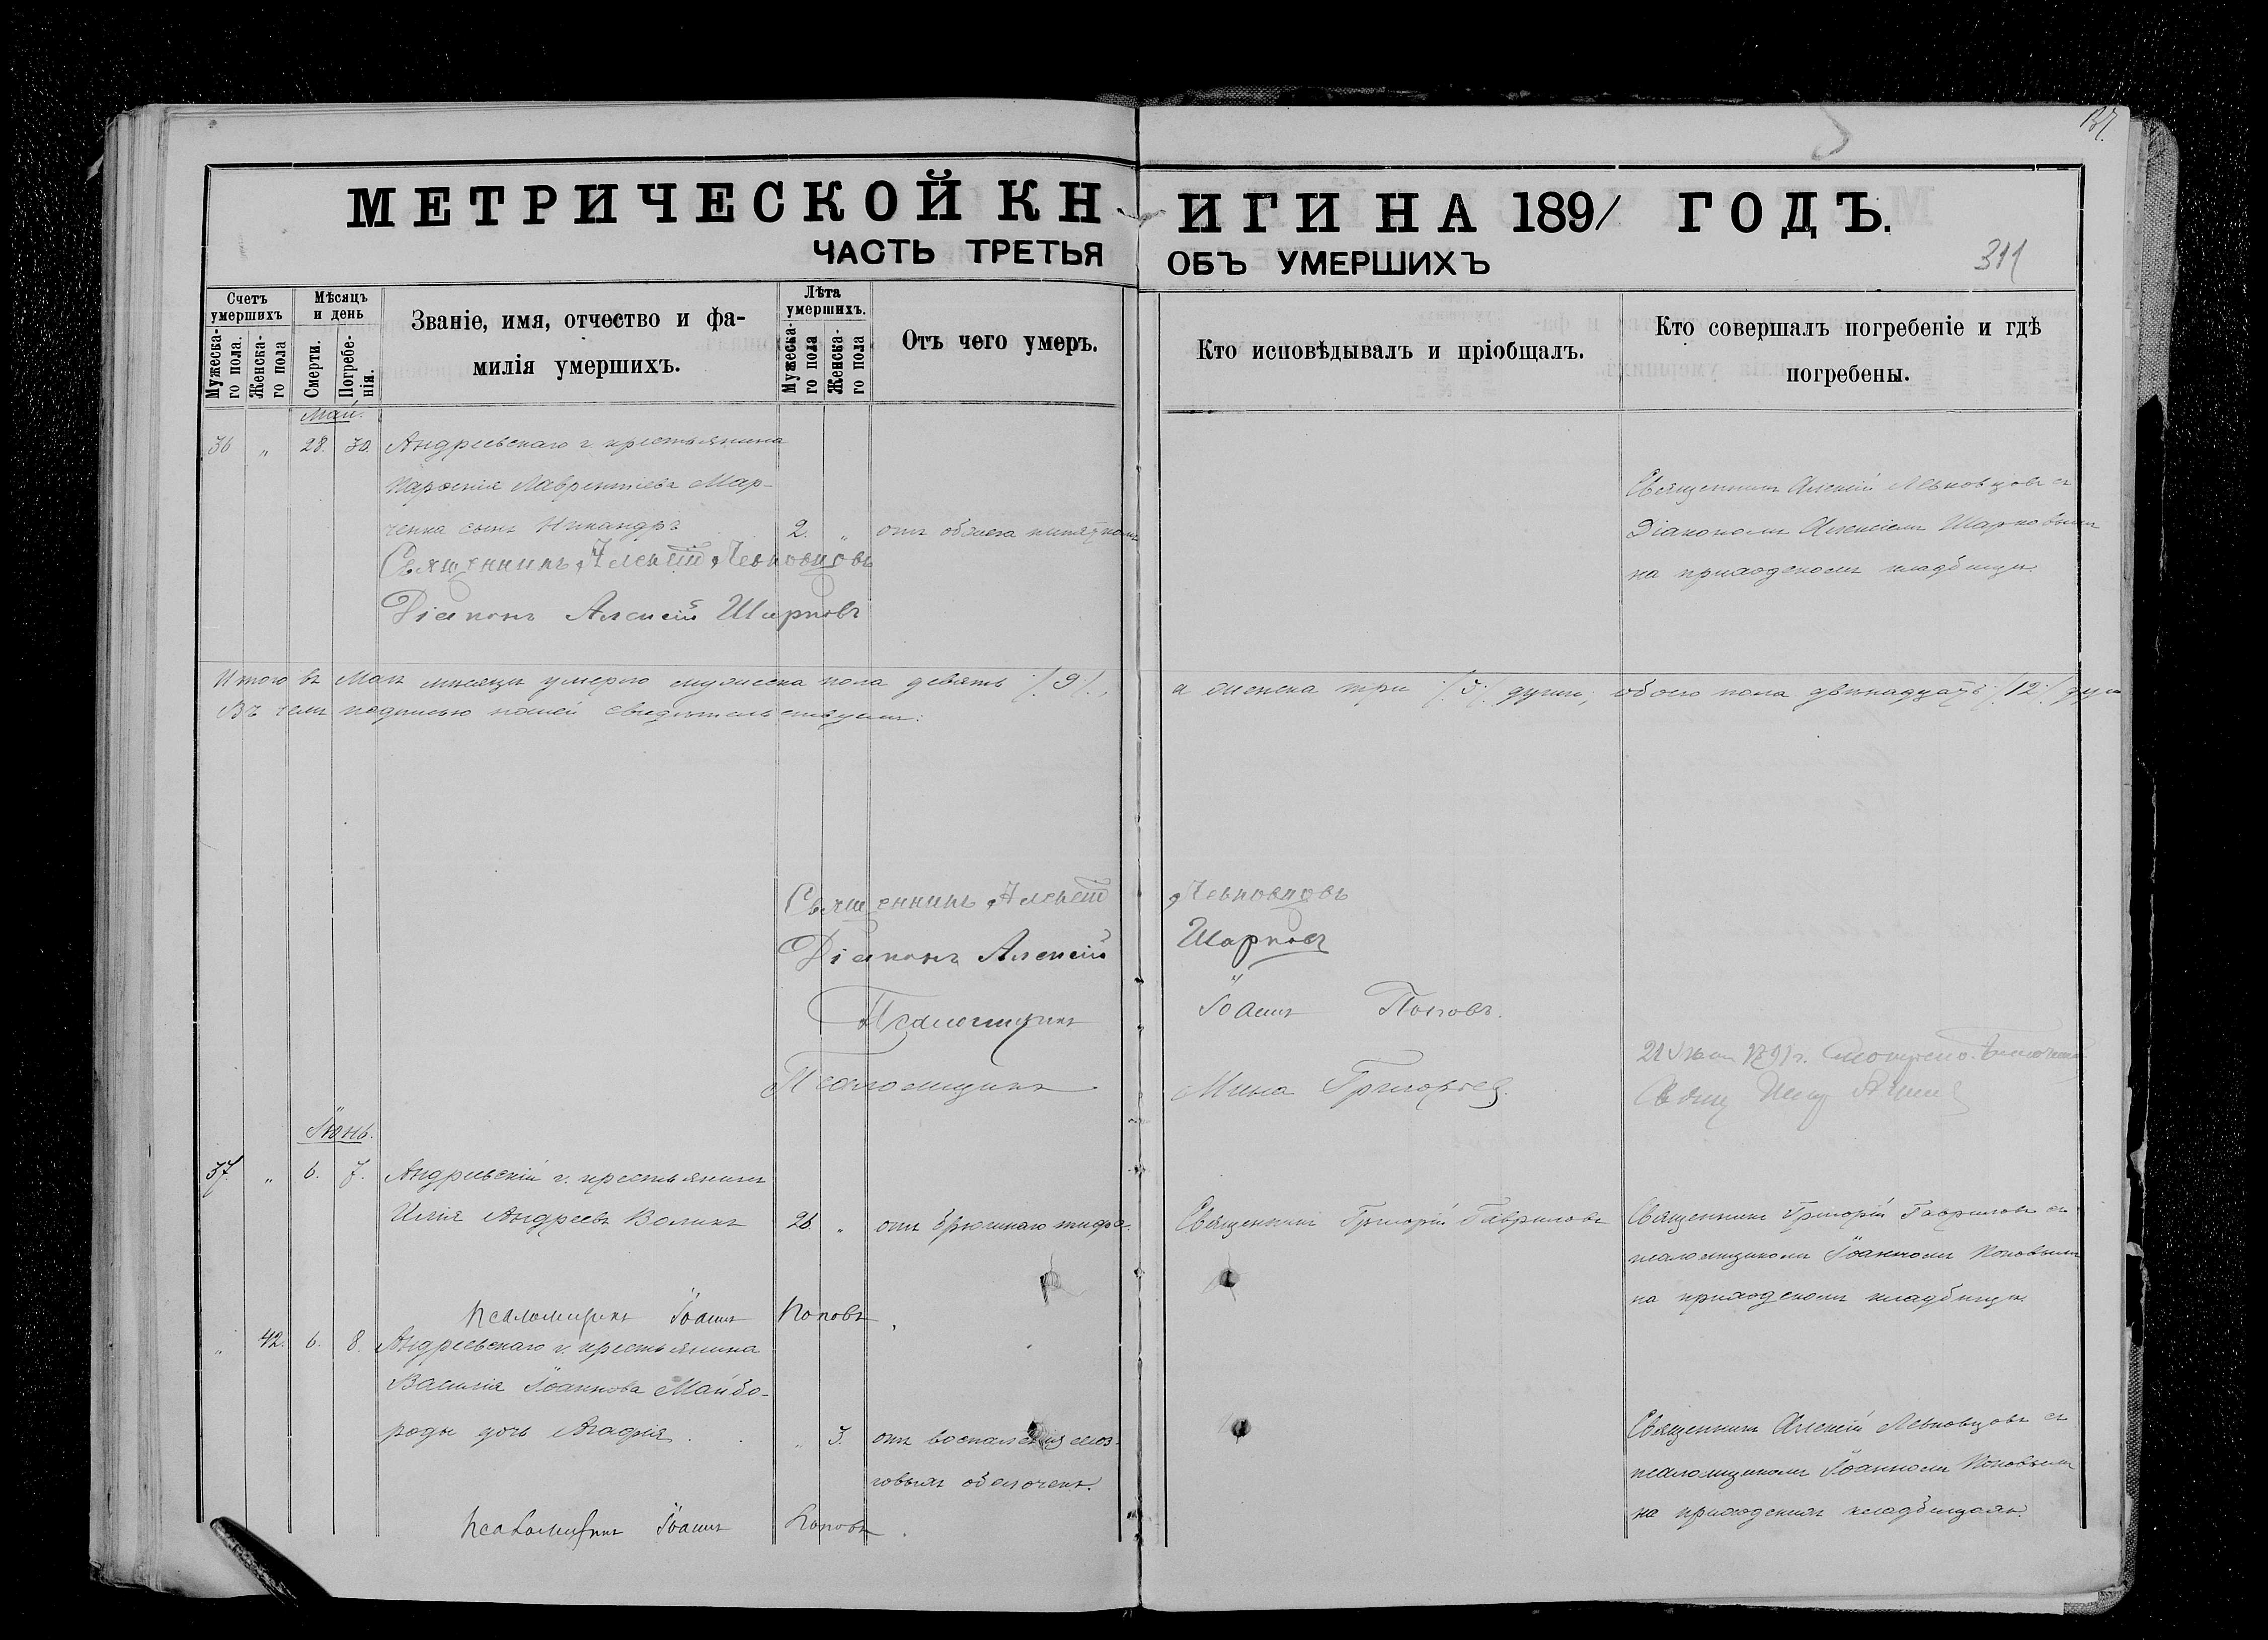 137.
МЕТРИЧЕСКОЙ КНИГИ НА 1891 ГОДЪ.
ЧАСТЬ ТРЕТЬЯ ОБЪ УМЕРШИХЪ
311
Счетъ умершихъ
Мужеска-го пола.
Женска-го пола
Мѣсяцъ и день
Смерти.
Погребе-нія.
Званіе, имя, отчество и фа-
милія умершихъ.
Лѣта умершихъ.
Мужеска-го пола
Женска-го пола
Отъ чего умеръ.
Кто исповѣдывалъ и пріобщалъ.
Кто совершалъ погребеніе и гдѣ
погребены.
Май.
36 " 28. 30. Андреевскаго г. крестьянина
Парѳенія Лаврентіева Мар-
ченка сынъ Никандръ 2. " отъ обжега кипяткомъ
Священникъ Алексій Левковцовъ съ
Діакономъ Алексіемъ Шарковымъ
на приходскомъ кладбищѣ.
Священникъ Алексій Левковцовъ
Діаконъ Алексій Шарковъ
Итого въ Маѣ мѣсяцѣ умерло мужеска пола девять /.9/., а женска три /.3/. души, обоего пола двѣнадцать /.12/. душ
Въ чемъ подписью нашей свидѣтельствуемъ:
Священникъ Алексій Левковцовъ
Діаконъ Алексій Шарковъ
Псаломщикъ Іоаннъ Поповъ.
Псаломщикъ Мина Григорьев
21 1891 г.
Іюнь.
37. " 6. 7. Андреевскій г. крестьянинъ
Илія Андреевъ Воликъ 26 " отъ брюшнаго тифа.
Священникъ Григорій Гавриловъ
Священникъ Григорій Гавриловъ съ
псаломщикомъ Іоанномъ Поповымъ
на приходскомъ кладбищѣ.
Псаломщикъ Іоаннъ Поповъ
" 42. 6. 8. Андреевскаго г. крестьянина
Василія Іоаннова Майбо-
роды дочь Агафія. " 3. отъ воспаленія моз-
говыхъ оболочекъ.
Священникъ Алексій Левковцовъ съ
псаломщикомъ Іоанномъ Поповымъ
на приходскихъ кладбищахъ.
Псаломщикъ Іоаннъ Поповъ.